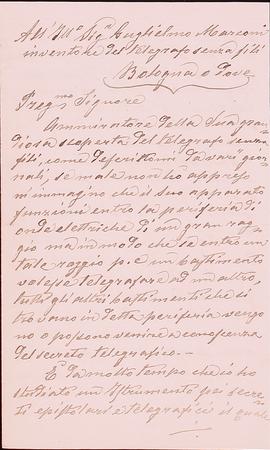 All' Ill.mo Sig.r Guglielmo Marconi
inventore del telegrafo senza fili
Bologna o dove
Preg.mo Signore
Ammiratore della Sua gran
diosa scoperta del telegrafo senza
fili, come descrittomi da vari gior
nali, se male non ho appreso
m'immagino che il suo apparato
funzioni entro la periferia di
onde elettriche di un gran rag
gio ma in modo che se entro un
tale raggio p. e. un bastimento
volesse telegrafare ad un altro,
tutti gli altri bastimenti che si
trovano in detta periferia vengo
no o possono venire a conoscenza
del secreto telegrafico. —
È da molto tempo che io ho
studiato un Istrumento pei secre
ti epistolari e telegrafici il quale